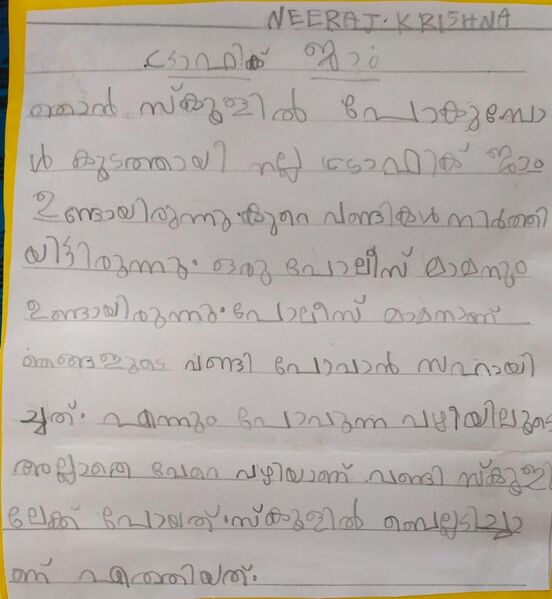 NEERAJ. KRISHNA
ട്രാഫിക് ജാം
ഞാൻ സ്കൂളിൽ പോകുമ്പോ
ൾ കുടത്തായി നല്ല ട്രാഫിക് ജാം
ഉണ്ടായിരുന്നു. കുറെ വണ്ടികൾ നിർത്തി
യിട്ടിരുന്നു. ഒരു പോലീസ് മാമനും
ഉണ്ടായിരുന്നു. പോലീസ് മാമനാണ്
ഞങ്ങളുടെ വണ്ടി പോവാൻ സഹായി
ച്ചത്. എന്നും പോവുന്ന വഴിയിലൂടെ
അല്ലാതെ വേറെ വഴിയാണ് വണ്ടി സ്കൂളി
ലേക്ക് പോയത്. സ്കൂളിൽ ബെല്ലടിച്ചാ
ണ് എത്തിയത്.